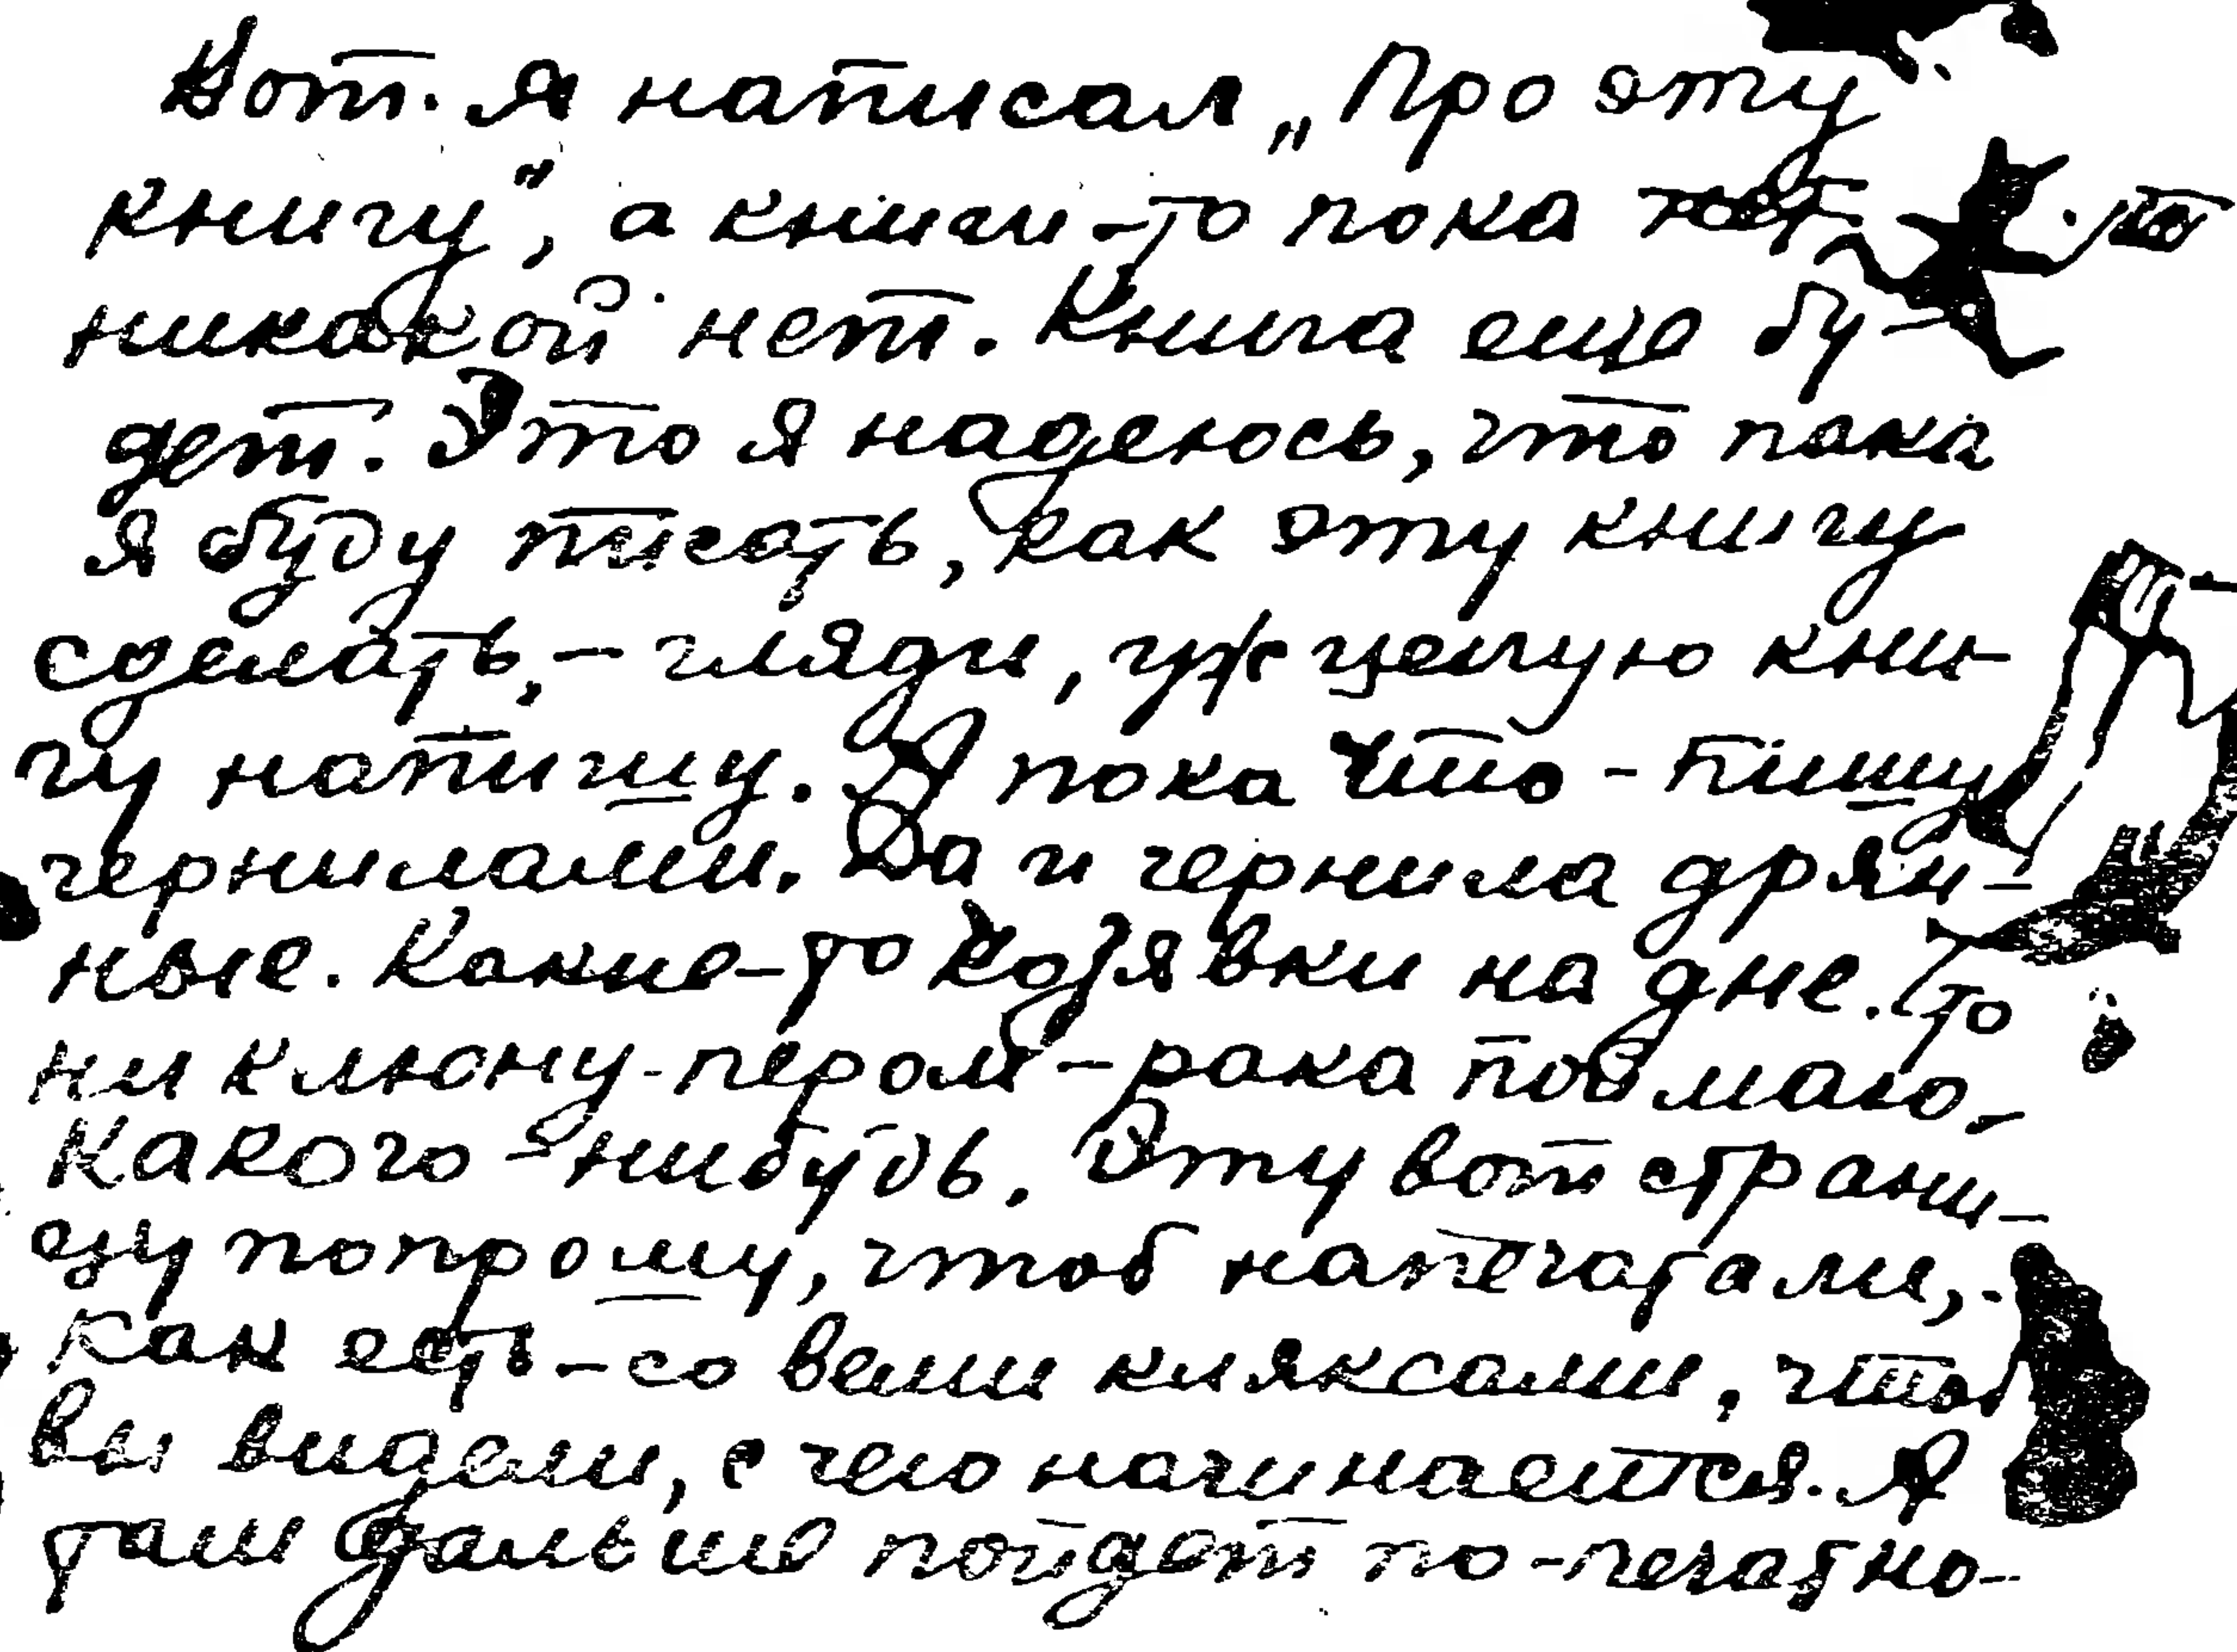 Вот. Я написал „Про эту
книгу", а книги-то пока
никакой нет. Книга еще бу-
дет. Это я надеюсь, что пока
я буду писать, как эту книгу
сделать, - гляди, уж целую кни-
гу напишу. А пока что - пишу
чернилами. Да и чернила дрян-
ные. Какие-то козявки на дне. Что
ни клюну-пером - рака поймаю,-
какого-нибудь. Эту вот страни-
цу попрошу, чтоб напечатали,-
как есть-со всеми кляксами, чтоб
вы видели, с чего начинается. А
там дальше пойдет по-печатно-